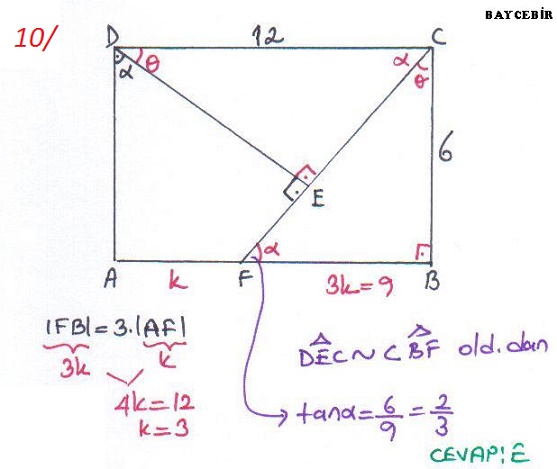 BAYCEBİR
10/
D 12 C
α θ α θ
6
E
α
A k F 3k=9 B
|FB|=3.|AF|
3k k
4k=12
k=3
DÊC~CBF old.dan
tanα=6/9=2/3
CEVAP:E